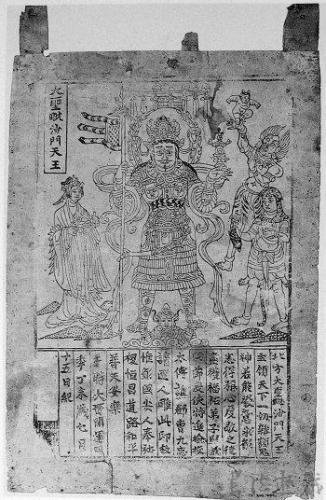 大聖毗沙門天王
北方大聖毗沙門天王
主領天下一切雜類鬼
神若能發意求願
悉得稱心虔敬之徒
盡獲福祐弟子歸義
軍節度使特進檢校
太傅譙郡曹元忠
請匠人雕此印板
惟願國安人泰社
稷恒昌道路和平
普天安樂
于時大晉開運四
年丁未歲七月
十五日紀